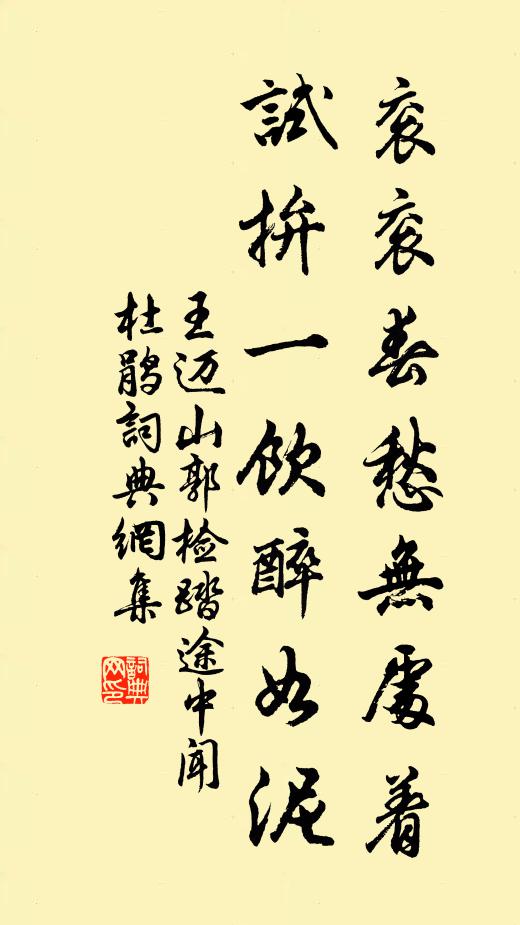 衮衮春愁無處着
試拚一飲醉如泥
王迈山郭检踏途中闻
杜鹃詞典網集
詞典网印